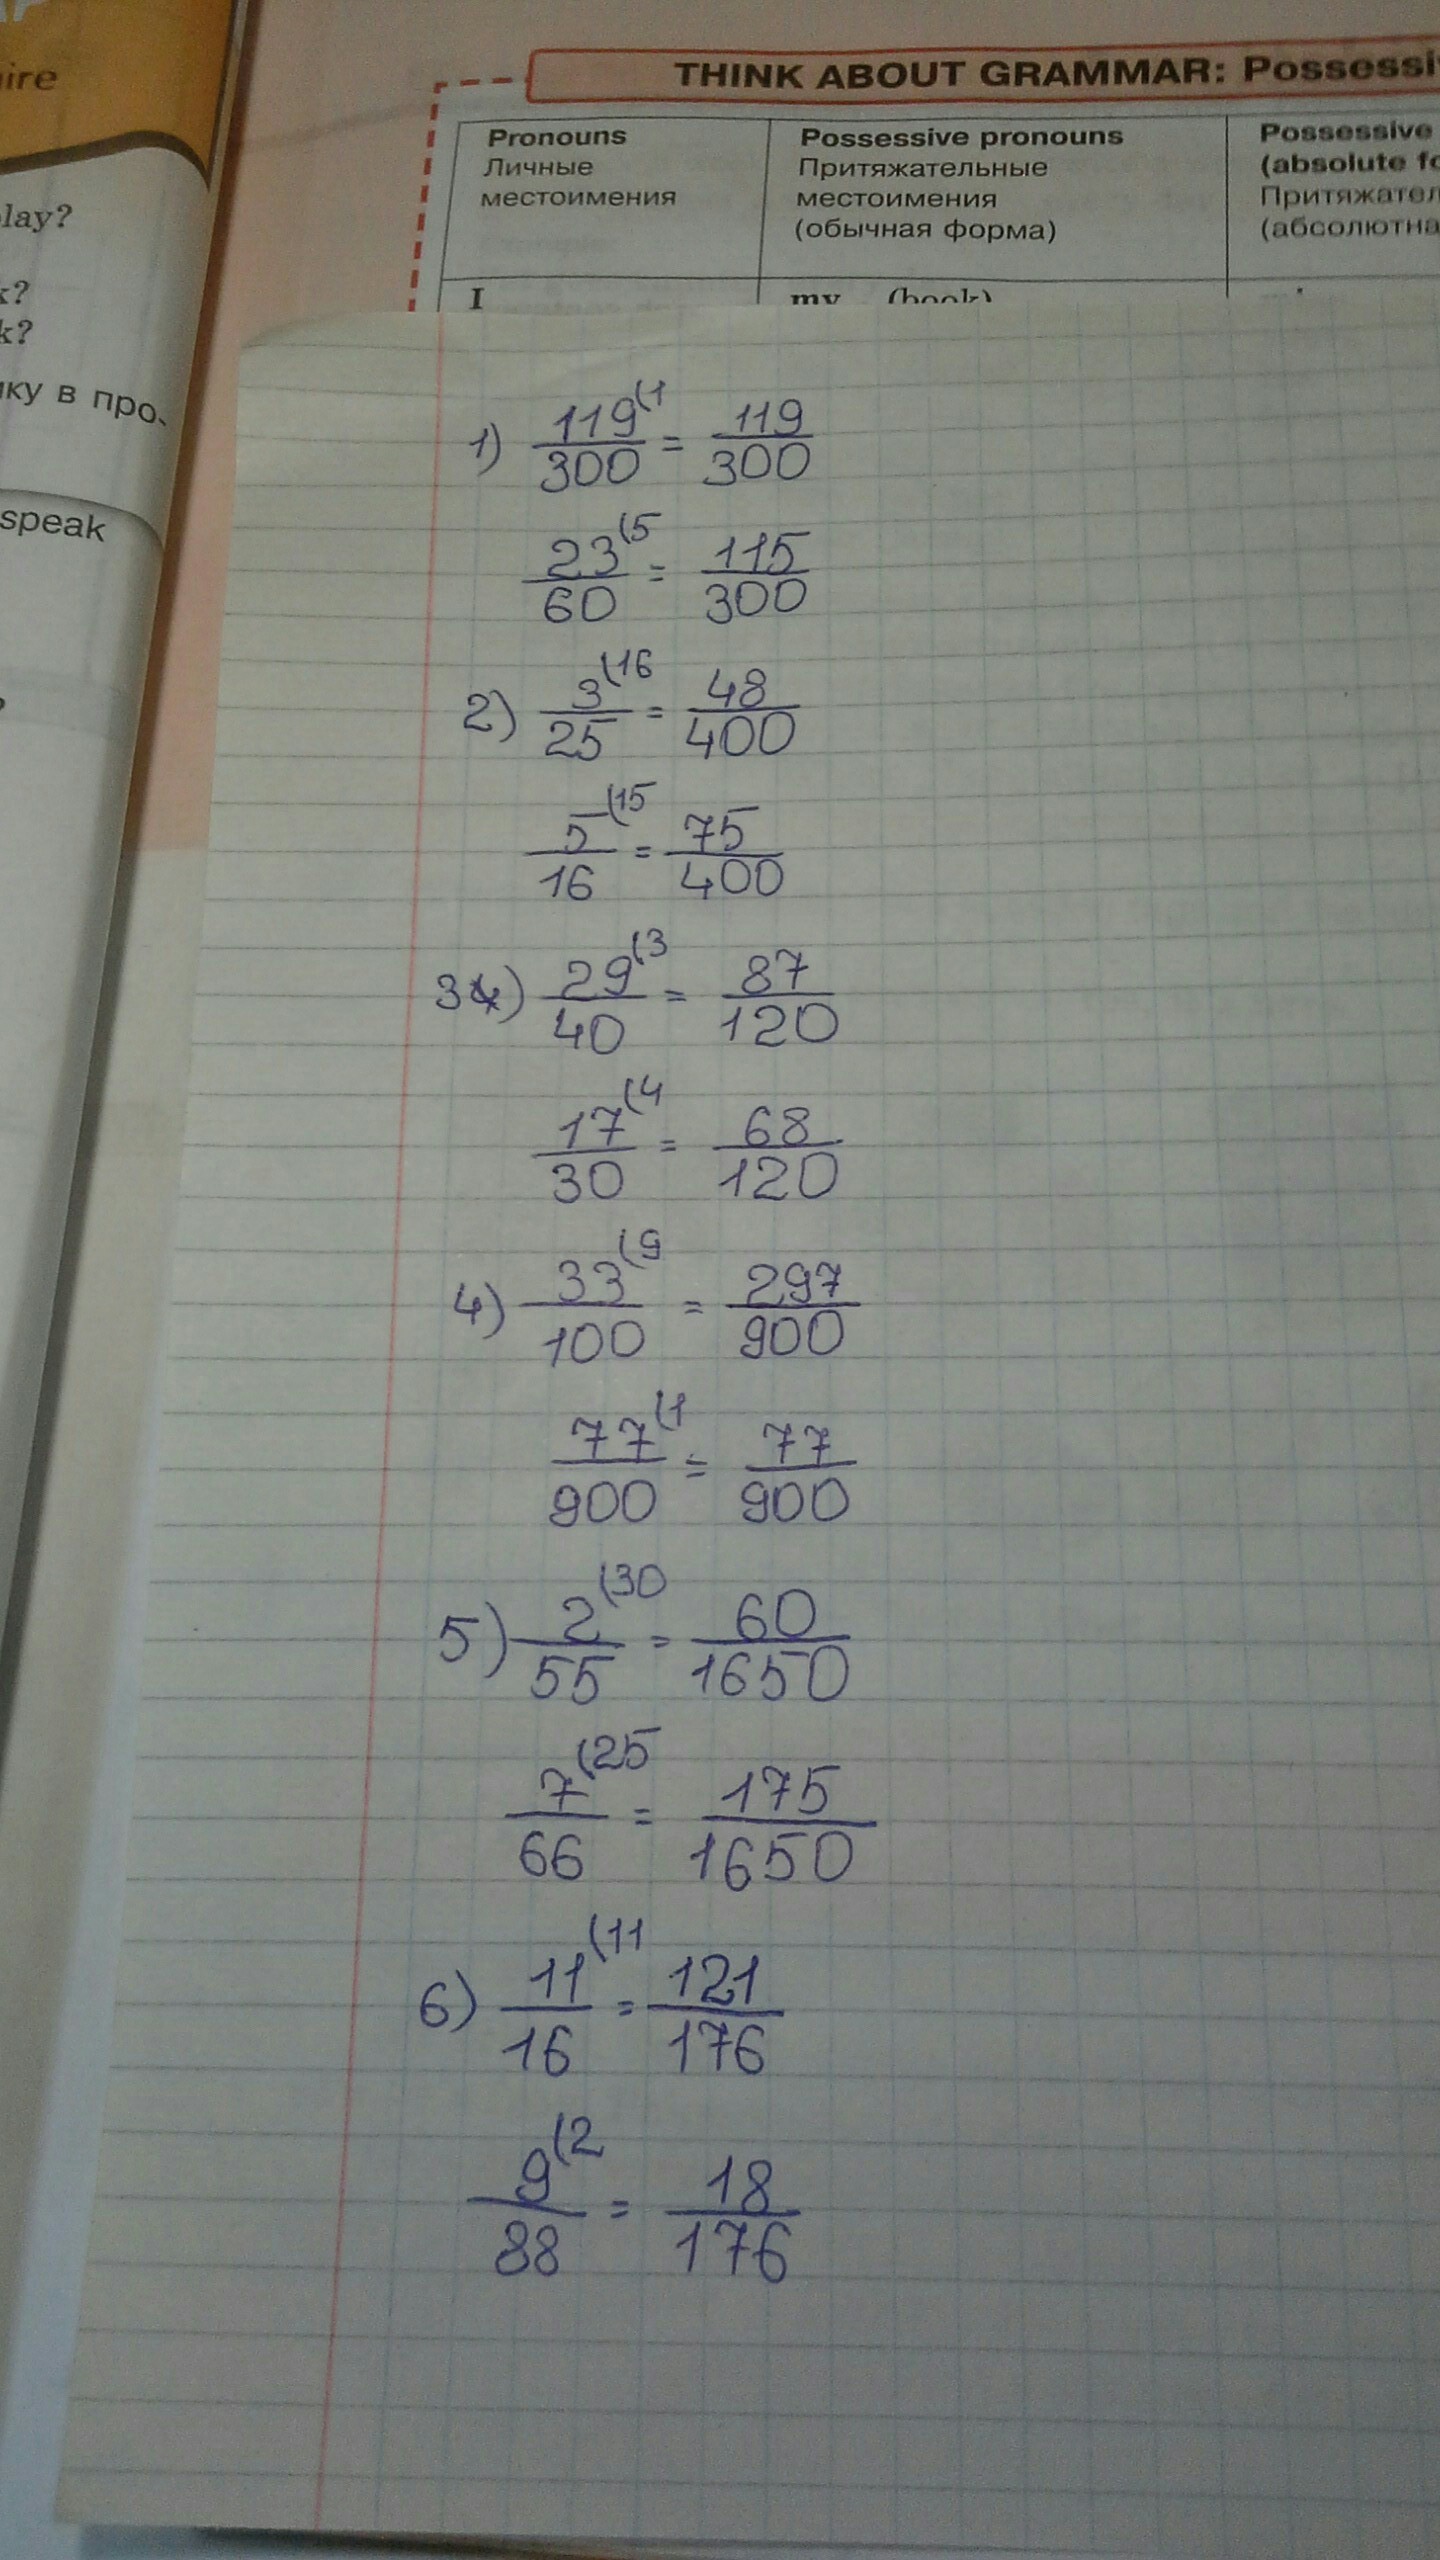 ire
lay?
k?
k?
ку в про-
speak
THINK ABOUT GRAMMAR: Possessi
Pronouns
Личные
местоимения
Possessive pronouns
Притяжательные
местоимения
(обычная форма)
Possessive
(absolute fo
Притяжател
(абсолютна
I
my (book)
1) 119(1/300 = 119/300
23(5/60 = 115/300
2) 3(16/25 = 48/400
5(15/16 = 75/400
3) 29(3/40 = 87/120
17(4/30 = 68/120
4) 33(9/100 = 297/900
77(1/900 = 77/900
5) 2(30/55 = 60/1650
7(25/66 = 175/1650
6) 11(11/16 = 121/176
9(2/88 = 18/176